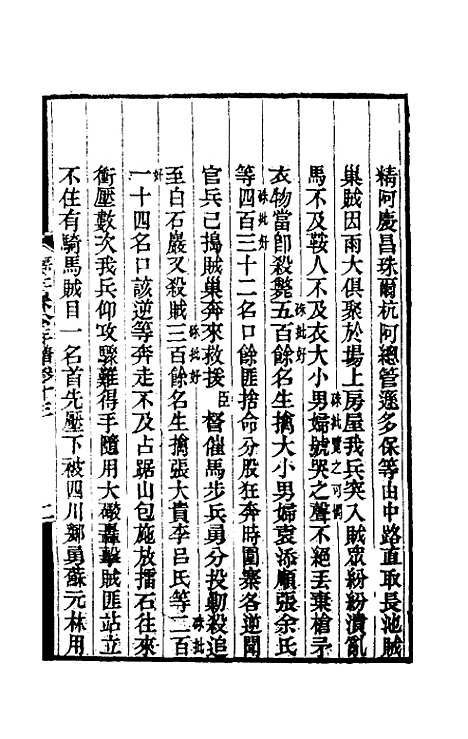 精阿慶昌珠爾杭阿總管遜多保等由中路直取長池賊
巢賊因雨大俱聚於場上房屋我兵突入賊眾紛紛潰亂
硃批覽之可憫
馬不及鞍人不及衣大小男婦號哭之聲不絕丟棄槍矛
衣物當卽殺斃五百餘名生擒大小男婦袁添順張余氏
等四百三十二名口硃批好餘匪捨命分股狂奔時圍寨各逆聞
官兵已搗賊巢奔來救援硃批好臣督催馬步兵勇分投勦殺追
至白石巖又殺賊三百餘名生擒張大貴李呂氏等二百
硃批好
一十四名口該逆等奔走不及占踞山包施放擂石往來
衝壓數次我兵仰攻驟難得手隨用大礮轟擊賊匪站立
不住有騎馬賊目一名首先壓下被四川鄉勇蘇元林用